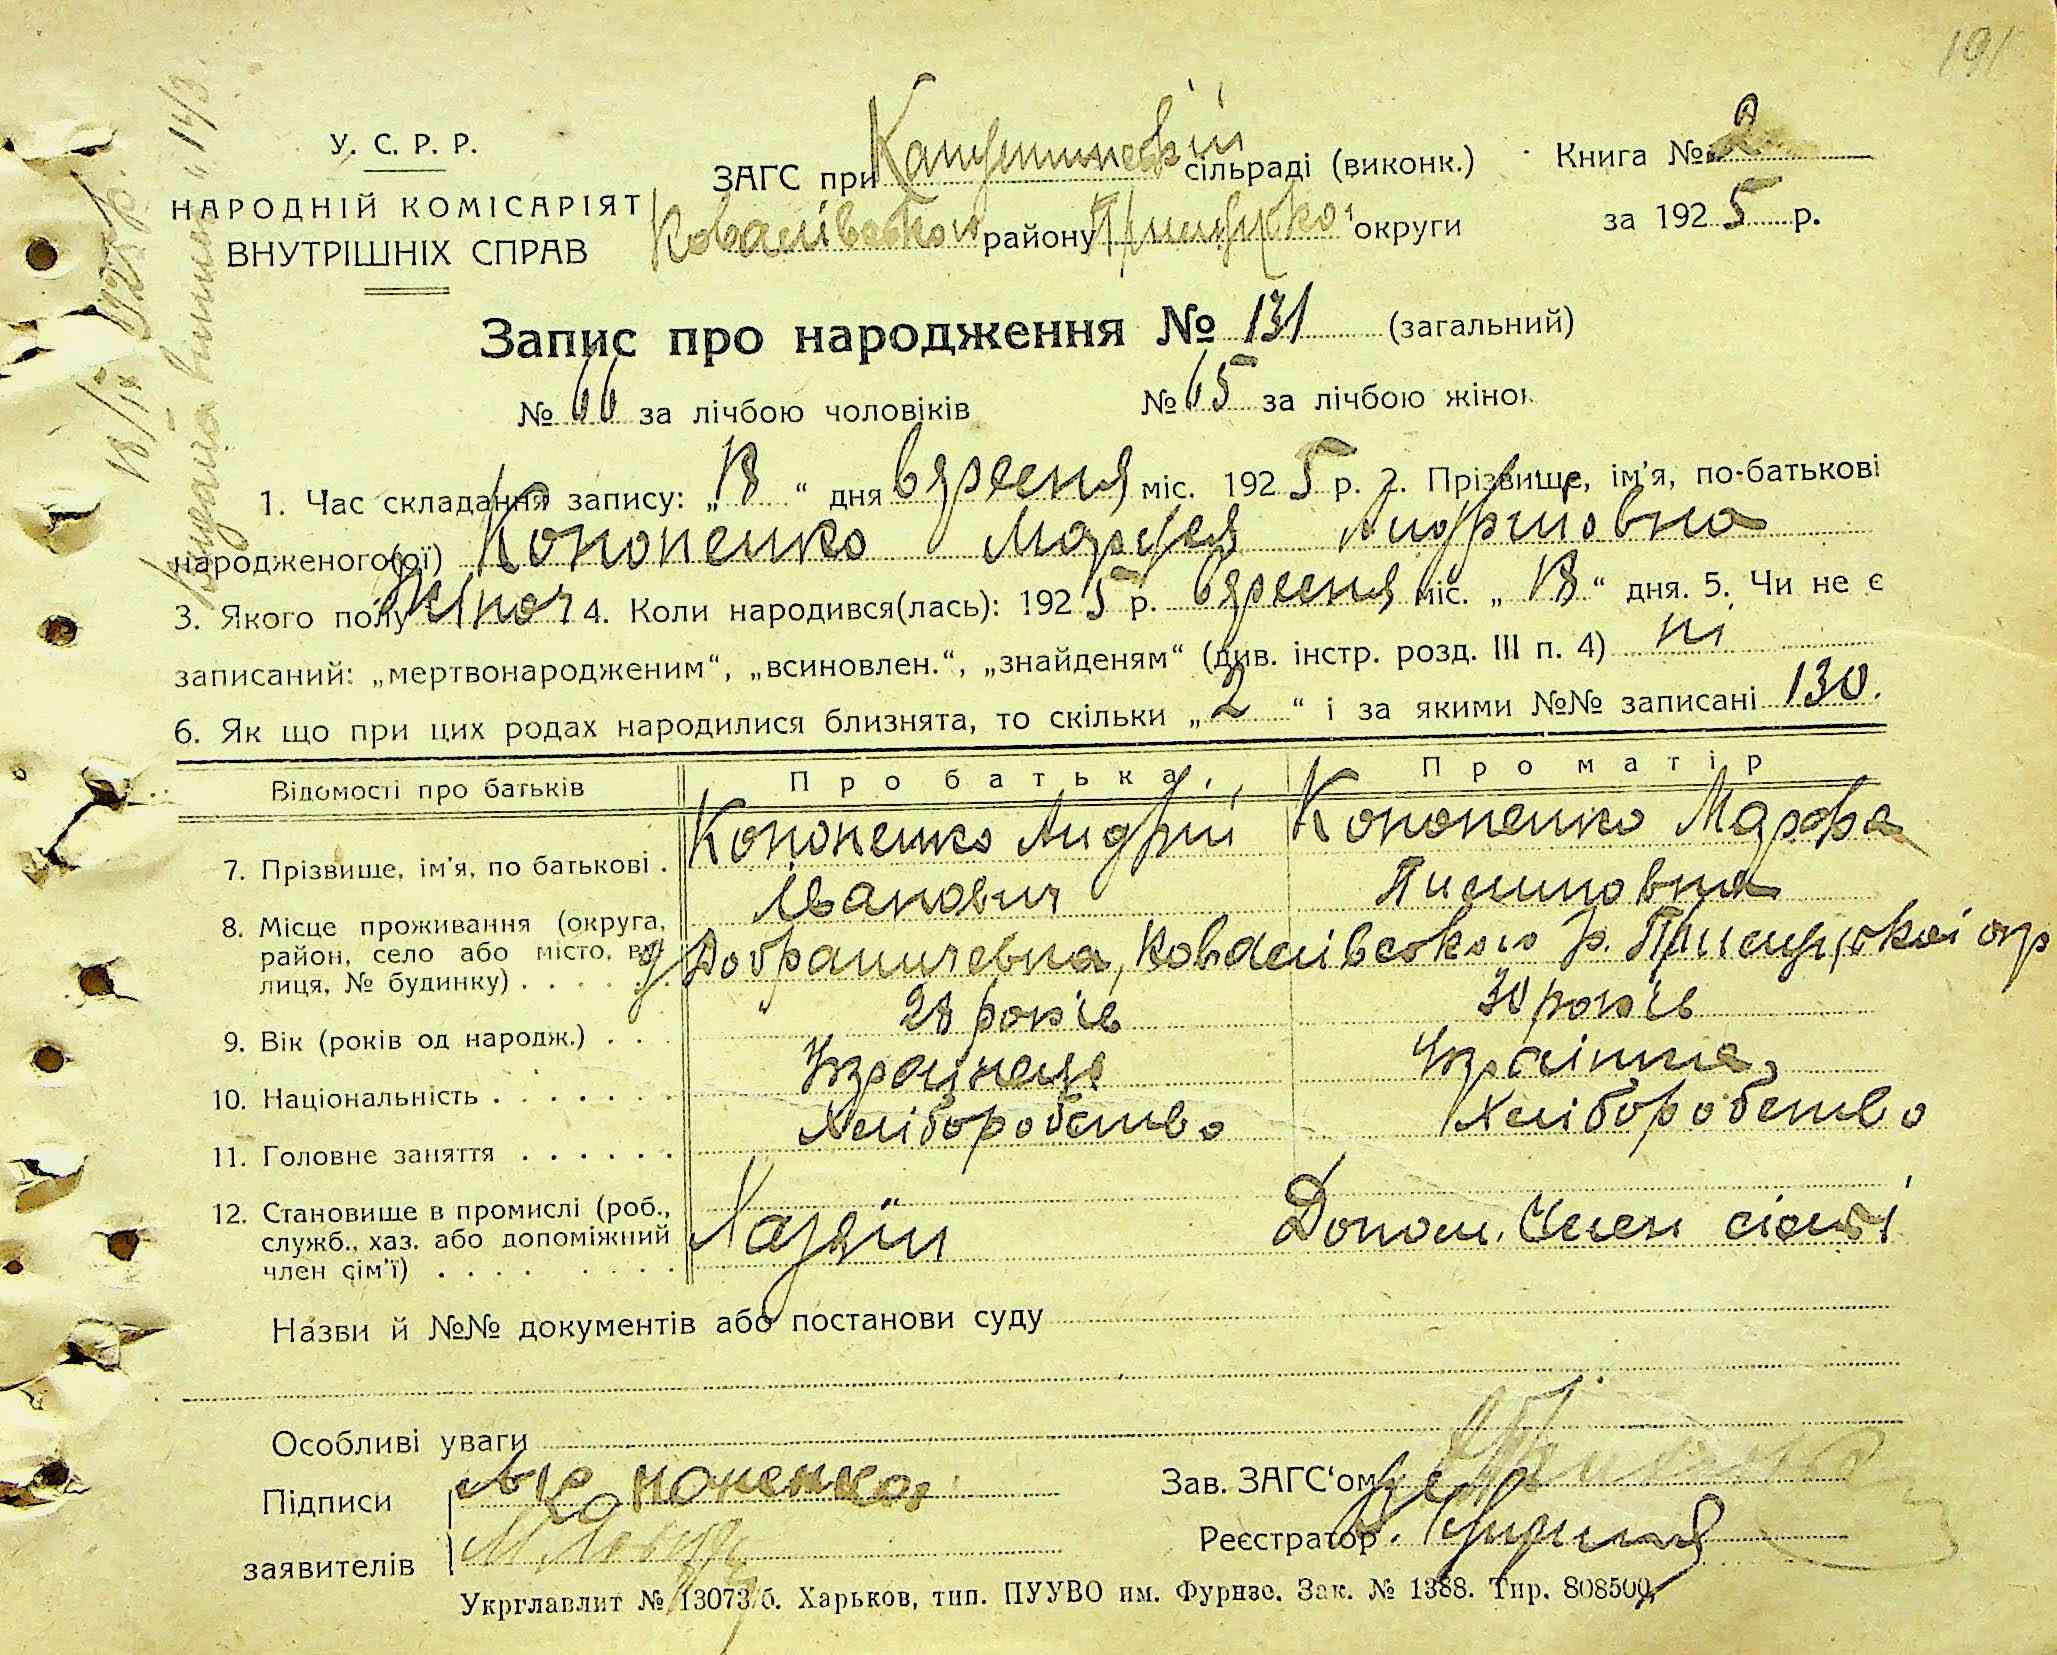 191
У. С. Р. Р.
НАРОДНІЙ КОМІСАРІЯТ
ВНУТРІШНІХ СПРАВ
ЗАГС при Капустинській сільраді (виконк.)
Ковалівського району Прилуцької округи
Книга № 2
за 1925 р.
Запис про народження № 131 (загальний)
№ 66 за лічбою чоловіків № 65 за лічбою жінок
1. Час складання запису: „18“ дня вересня міс. 1925 р. 2. Прізвище, ім'я, по-батькові
народженого(ої) Кононенко Маруся Андріївна
3. Якого полу жіноч 4. Коли народився(лась): 1925 р. вересня міс. „18“ дня. 5. Чи не є
записаний: „мертвонародженим“, „всиновлен.“, „знайденям“ (див. інстр. розд. III п. 4) ні
6. Як що при цих родах народилися близнята, то скільки „2“ і за якими №№ записані 130.
Відомості про батьків Про батька Про матір
7. Прізвище, ім'я, по батькові . Кононенко Андрій Іванович Кононенко Марфа
8. Місце проживання (округа, район, село або місто, вулиця, № будинку) . . . . . Ковалівського р. Прилуцької окр
9. Вік (років од народж.) . . . 28 років 30 років
10. Національність . . . . . . . Українець Українка
11. Головне заняття . . . . . . Хліборобство Хліборобство
12. Становище в промислі (роб., служб., хаз. або допоміжний член сім'ї) . . . . . . . . Хазяїн Допом. член сім'ї
Назви й №№ документів або постанови суду
Особливі уваги
Підписи Кононенко
заявителів
Зав. ЗАГС'ом
Реєстратор
Укрглавлит № 13073/б. Харьков, тип. ПУУВО им. Фрунзе. Зак. № 1388. Тир. 808500